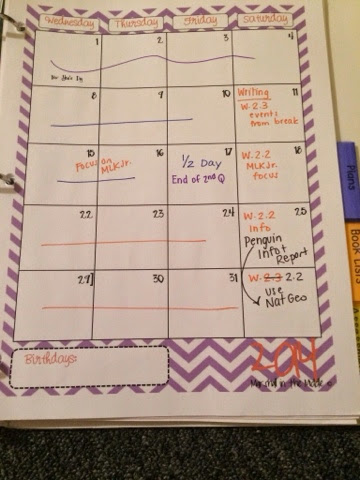 Wednesday Thursday Friday Saturday
1 2 3 4
8 9 10 11
Writing
W.2.3
events
from break
15 16 17 18
Focus on
MLK Jr.
1/2 Day
End of 2nd Q
W.2.2
MLK Jr.
focus
22 23 24 25
W.2.2
Info
Penguin
Info+
Report
29 30 31
W. 2.3 2.2
use
Nat Geo
Birthdays:
2014
in the Middle
Plans
Book Lists